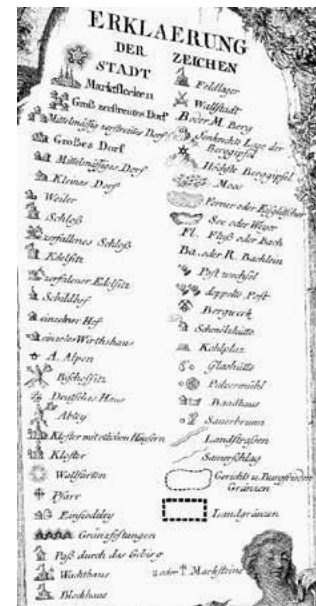 ERKLAERUNG
DER ZEICHEN
STADT
Marktflecken
Groß zerstreutes Dorf
Mittelmäßig zerstreutes Dorf
Großes Dorf
Mittelmäßiges Dorf
Kleines Dorf
Weiler
Schloß
zerfallenes Schloß
Edelsitz
zerfalener Edelsitz
Schildhof
einzelner Hof
einzeles Wirthshaus
A. Alpen
Bischofsitz
Deutsches Haus
Abtey
Kloster mit etlichen Häusern
Kloster
Wallfarten
Pfarr
Einsiedeley
Gränzfestungen
Paß durch das Gebirg
Wachthaus
Blockhaus
Feldlager
Wallstadt
B. oder M. Berg
Senkrechte Lage der
Berggipfel
Höchste Berggipfel
Moos
Ferner oder Eisglätscher
See oder Weyer
Fl. Fluß oder Bach
Ba. oder R. Bachlein
Postwechsel
doppelte Post
Bergwerk
Schmelzhütte
Kohlplaz
Glashütte
Pulvermühl
Baadhaus
Sauerbrunn
Landstraßen
Samerschlag
Gerichts u. Burgfrieden
Gränzen
Landgränzen
u. oder Marksteine